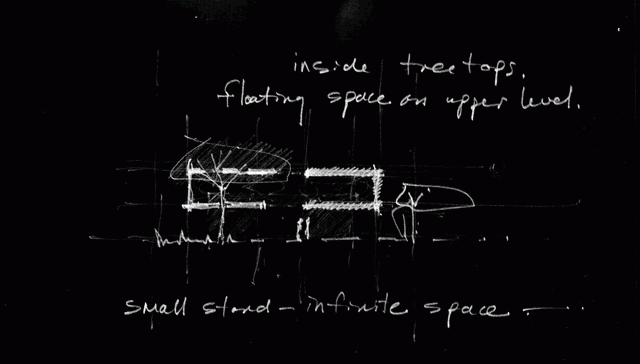 inside treetops.
floating space on upper level.
small stand – infinite space —....